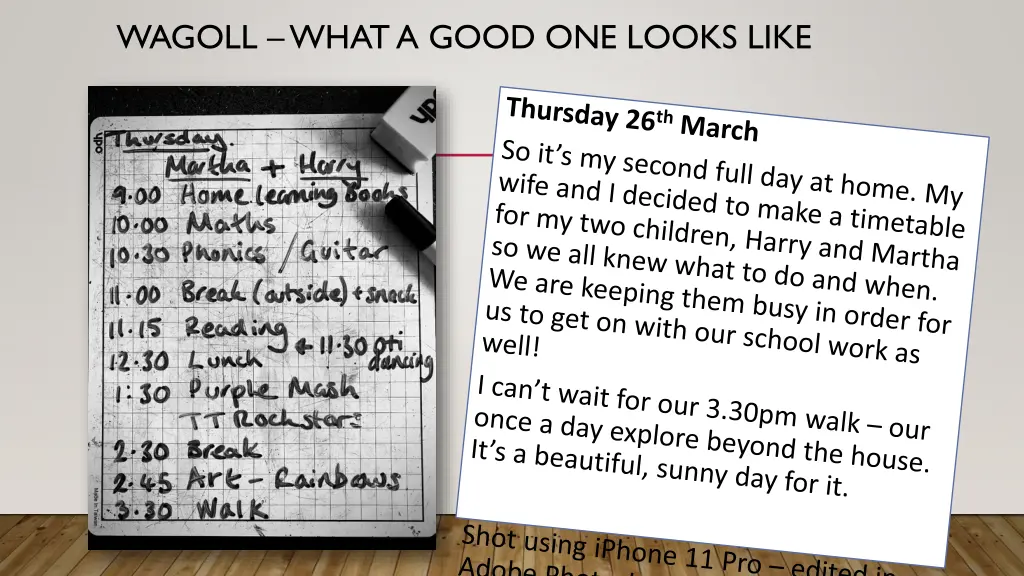 WAGOLL – WHAT A GOOD ONE LOOKS LIKE
odh
Thursday.
Martha + Harry
9.00 Home learning Books
10.00 Maths
10.30 Phonics / Guitar
11.00 Break (outside) + snack
11.15 Reading
+ 11.30 oti
dancing
12.30 Lunch
1:30 Purple Mash
TT Rockstars
2.30 Break
2.45 Art - Rainbows
3.30 Walk
Thursday 26th March
So it’s my second full day at home. My
wife and I decided to make a timetable
for my two children, Harry and Martha
so we all knew what to do and when.
We are keeping them busy in order for
us to get on with our school work as
well!
I can’t wait for our 3.30pm walk – our
once a day explore beyond the house.
It’s a beautiful, sunny day for it.
Shot using iPhone 11 Pro – edited in
Adobe